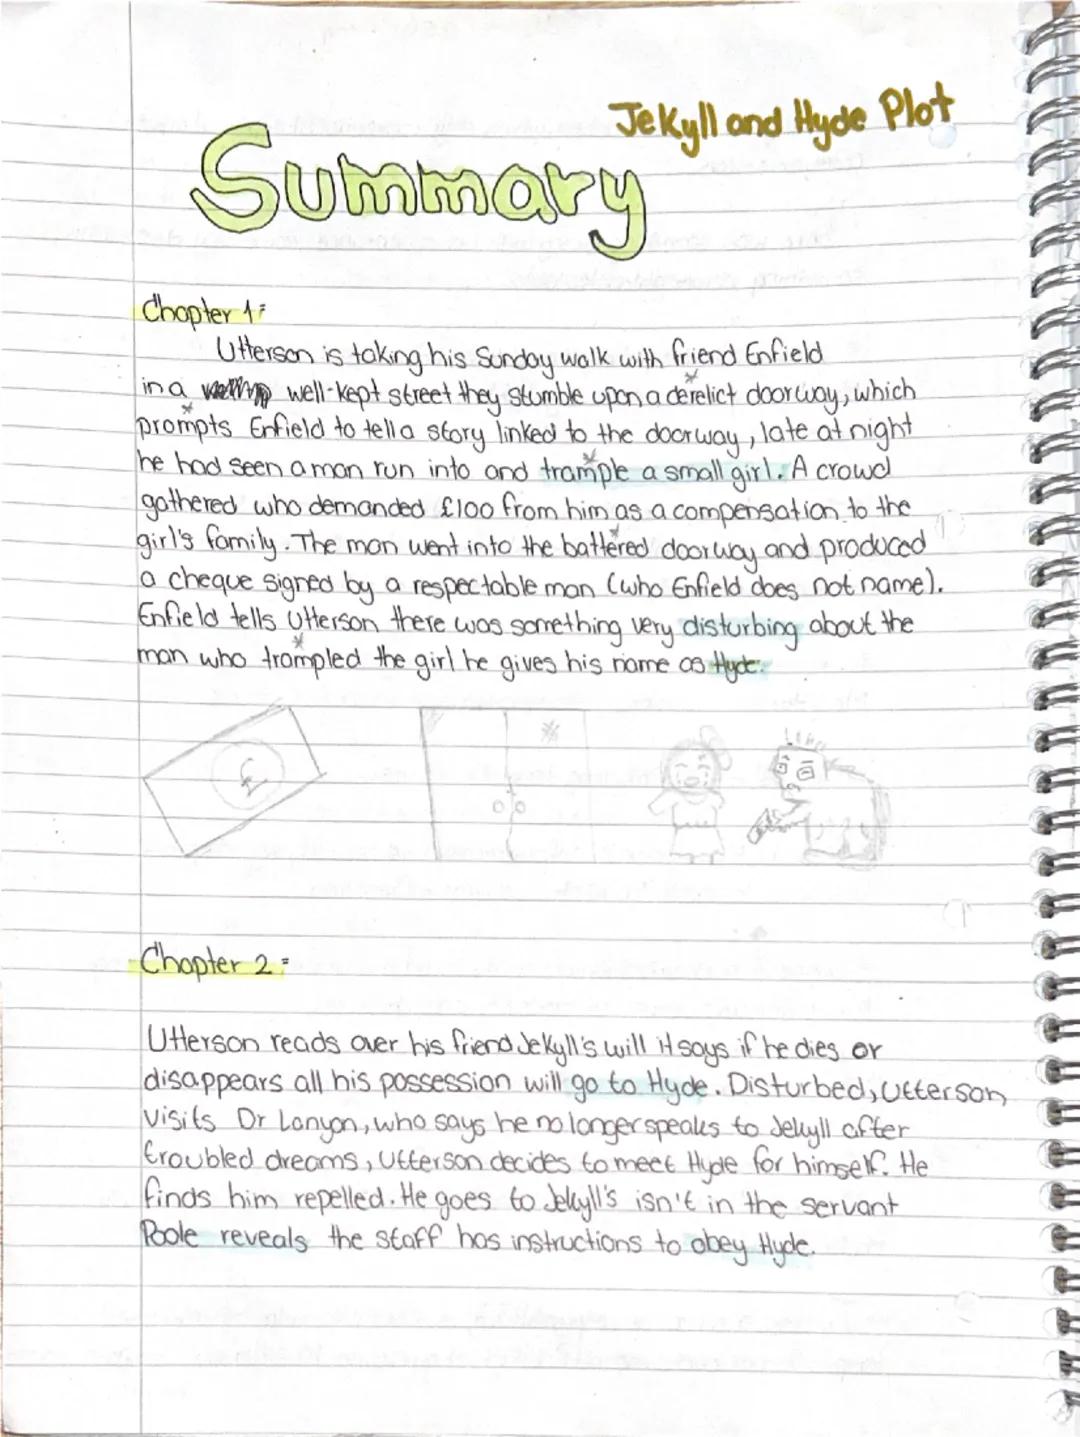 Jekyll and Hyde Plot
Summary
Chapter 1:
Utterson is taking his Sunday walk with friend Enfield
in a well-kept street they stumble upon a derelict doorway, which
prompts Enfield to tell a story linked to the doorway, late at night
he had seen a man run into and trample a small girl. A crowd
gathered who demanded £100 from him as a compensation to the
girl's family. The man went into the battered doorway and produced
a cheque signed by a respectable man (who Enfield does not name).
Enfield tells Utterson there was something very disturbing about the
man who trampled the girl he gives his name as Hyde.
£
Chapter 2:
Utterson reads over his friend Jekyll's will it says if he dies or
disappears all his possession will go to Hyde. Disturbed, Utterson
visits Dr Lanyon, who says he no longer speaks to Jekyll after
troubled dreams, Utterson decides to meet Hyde for himself. He
finds him repelled. He goes to Jekyll's isn't in the servant
Poole reveals the staff has instructions to obey Hyde.